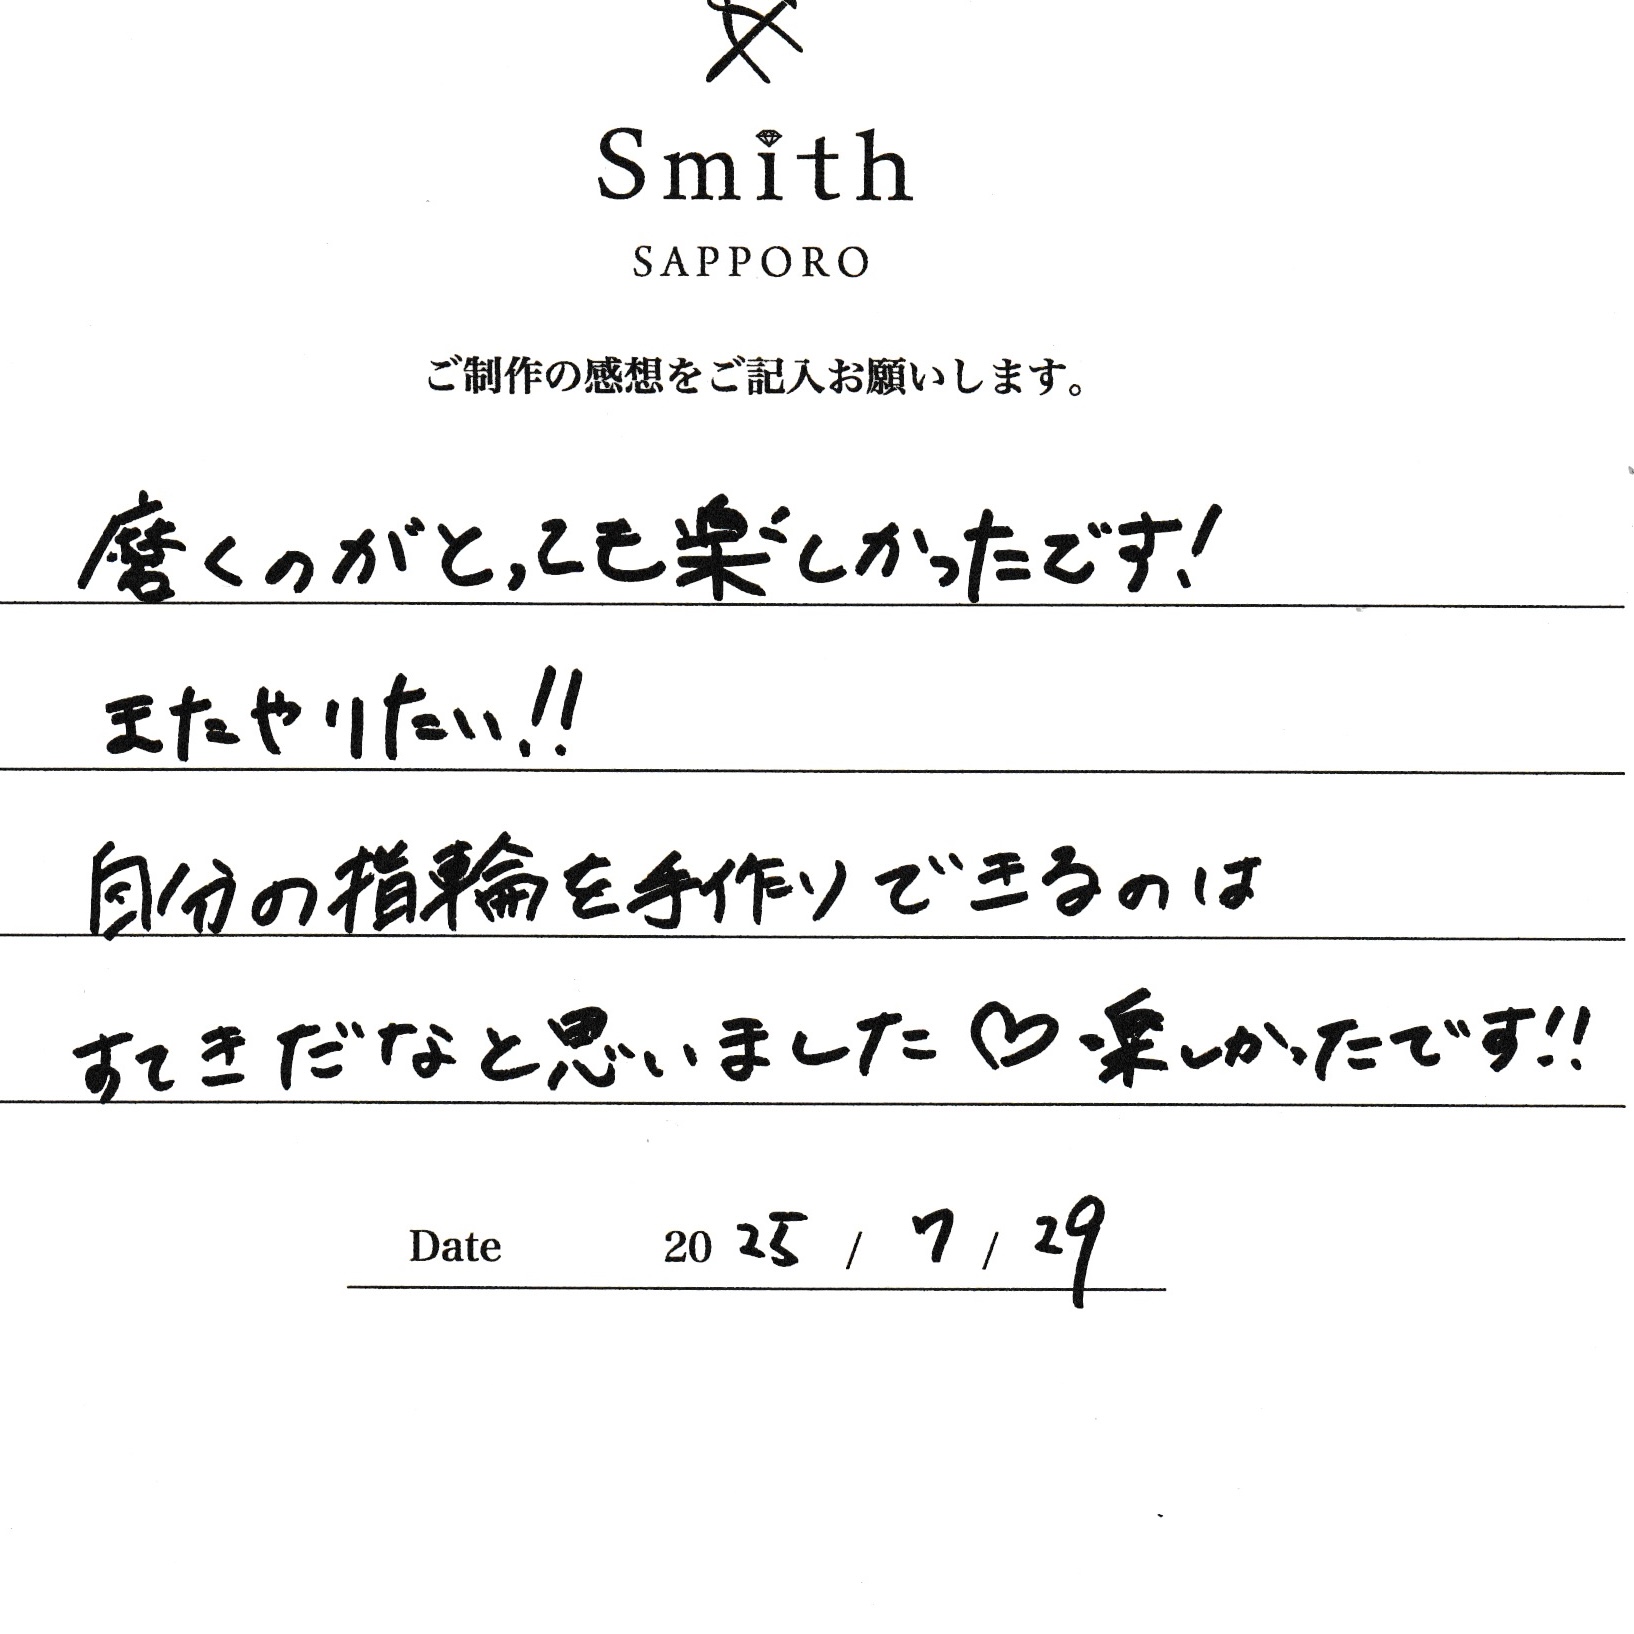 Smith
SAPPORO
ご制作の感想をご記入お願いします。
磨くのがとっても楽しかったです!
またやりたい!!
自分の指輪を手作りできるのは
すてきだなと思いました♡楽しかったです!!
Date 2025 / 7 / 29